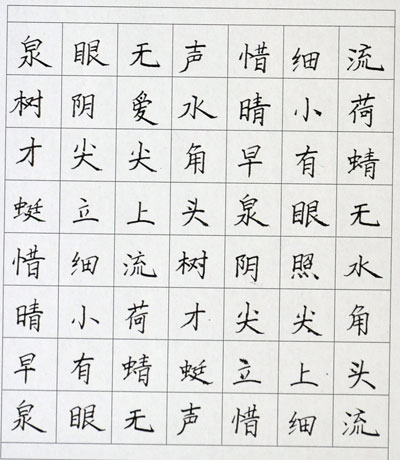 泉眼无声惜细流
树阴爱水晴小荷
才尖尖角早有蜻
蜓立上头泉眼无
惜细流树阴照水
晴小荷才尖尖角
早有蜻蜓立上头
泉眼无声惜细流